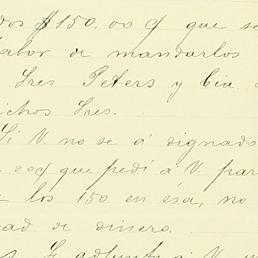 dos $150.00 q que se
labor de mandarlos
Sres Peters y Cia
ichos Sres.
Si V. no se á dignado
e q que pedí a V. par
e los 150. en ésa, no
ad de dinero.
Le adjunto á V. u